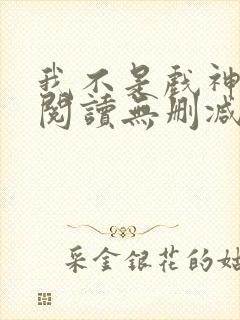 我不是戲神
閱讀無刪減
采金銀花的姑